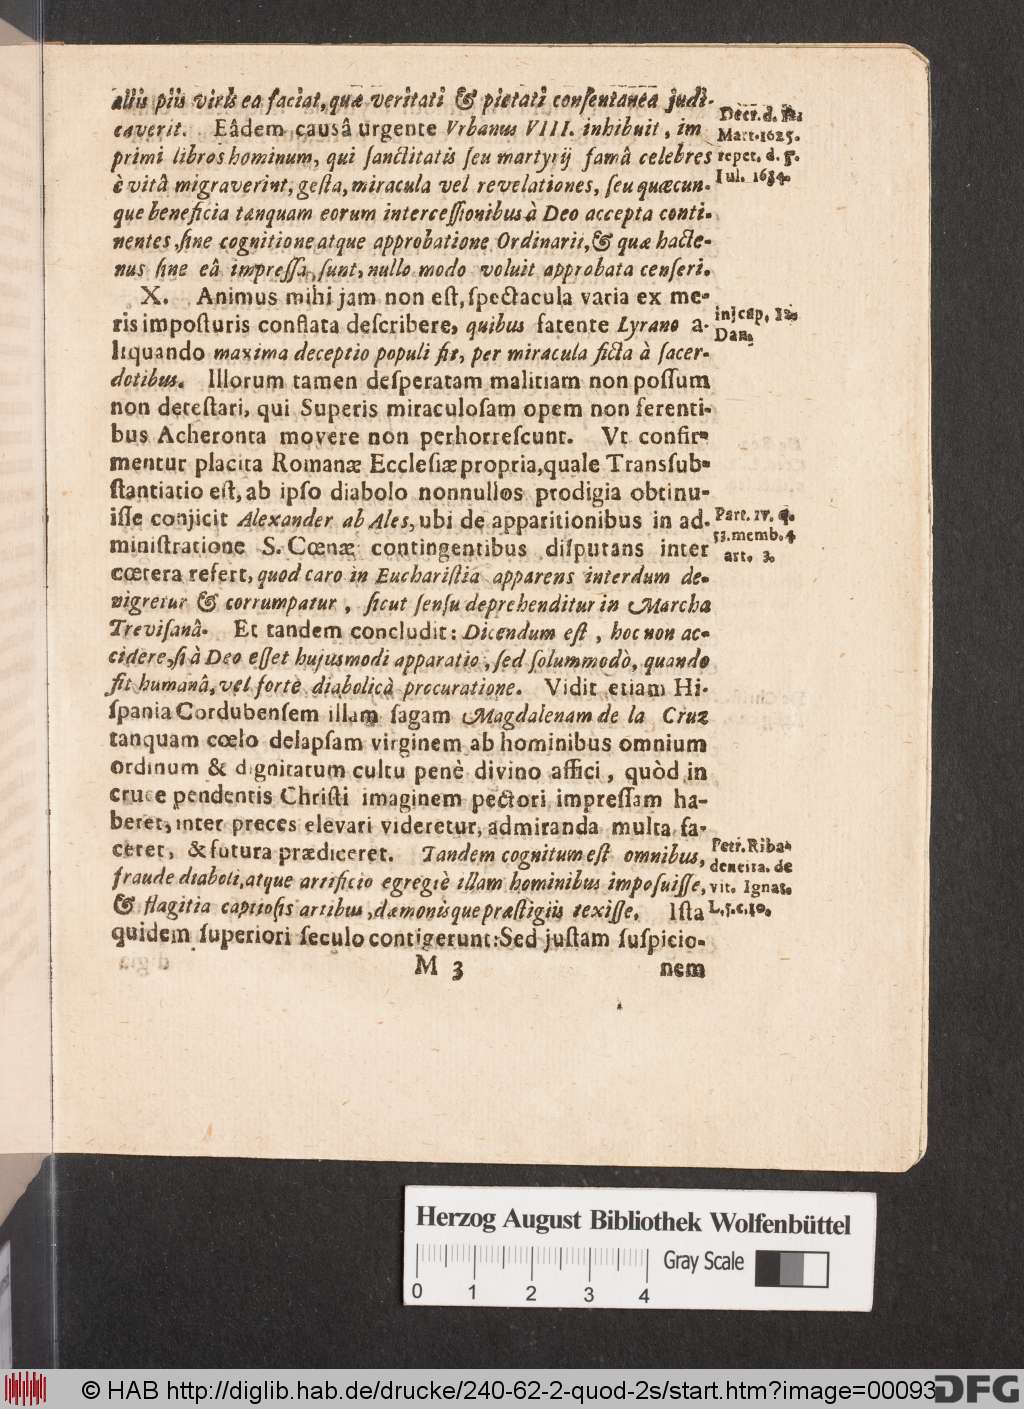 aliis piis viris ea faciat, quæ veritati & pietati consentanea judi-
caverit. Eâdem causâ urgente Vrbanus VIII. inhibuit, im
primi libros hominum, qui sanctitatis seu martyrij famâ celebres
è vitâ migraverint, gesta, miracula vel revelationes, seu quæcun-
que beneficia tanquam eorum intercessionibus à Deo accepta conti-
nentes, sine cognitione atque approbatione Ordinarii, & quæ hacte-
nus sine eâ impressa, sunt, nullo modo voluit approbata censeri.
Decr. d.
Mart. 1625.
repet. d. 5.
Iul. 1634.
X. Animus mihi jam non est, spectacula varia ex me-
ris imposturis conflata describere, quibus fatente Lyrano a-
liquando maxima deceptio populi fit, per miracula ficta à sacer-
dotibus. Illorum tamen desperatam malitiam non possum
non detestari, qui Superis miraculosam opem non ferenti-
bus Acheronta movere non perhorrescunt. Vt confir-
mentur placita Romanæ Ecclesiæ propria, quale Transsub-
stantiatio est, ab ipso diabolo nonnullos prodigia obtinu-
isse conjicit Alexander ab Ales, ubi de apparitionibus in ad-
ministratione S. Cœnæ contingentibus disputans inter
cœtera refert, quod caro in Eucharistia apparens interdum de-
nigretur & corrumpatur, sicut sensu deprehenditur in Marcha
Trevisanâ. Et tandem concludit: Dicendum est, hoc non ac-
cidere, si à Deo esset hujusmodi apparatio, sed solummodò, quando
fit humanâ, vel fortè diabolicà procuratione. Vidit etiam Hi-
spania Cordubensem illam sagam Magdalenam de la Cruz
tanquam cœlo delapsam virginem ab hominibus omnium
ordinum & dignitatum cultu penè divino affici, quòd in
cruce pendentis Christi imaginem pectori impressam ha-
beret, inter preces elevari videretur, admiranda multa fa-
ceret, & futura prædiceret. Tandem cognitum est omnibus,
fraude diaboli, atque artificio egregiè illam hominibus imposuisse,
& flagitia captiosis artibus, dæmonisque præstigiis texisse. Ista
quidem superiori seculo contigerunt: Sed justam suspicio-
in cap. 14.
Dan.
Part. IV. q.
53. memb. 4
art. 3.
Petr. Riba-
deneira. de
vit. Ignat.
L. 5. c. 10.
M 3
nem
Herzog August Bibliothek Wolfenbüttel
Gray Scale
0 1 2 3 4
© HAB http://diglib.hab.de/drucke/240-62-2-quod-2s/start.htm?image=00093
DFG